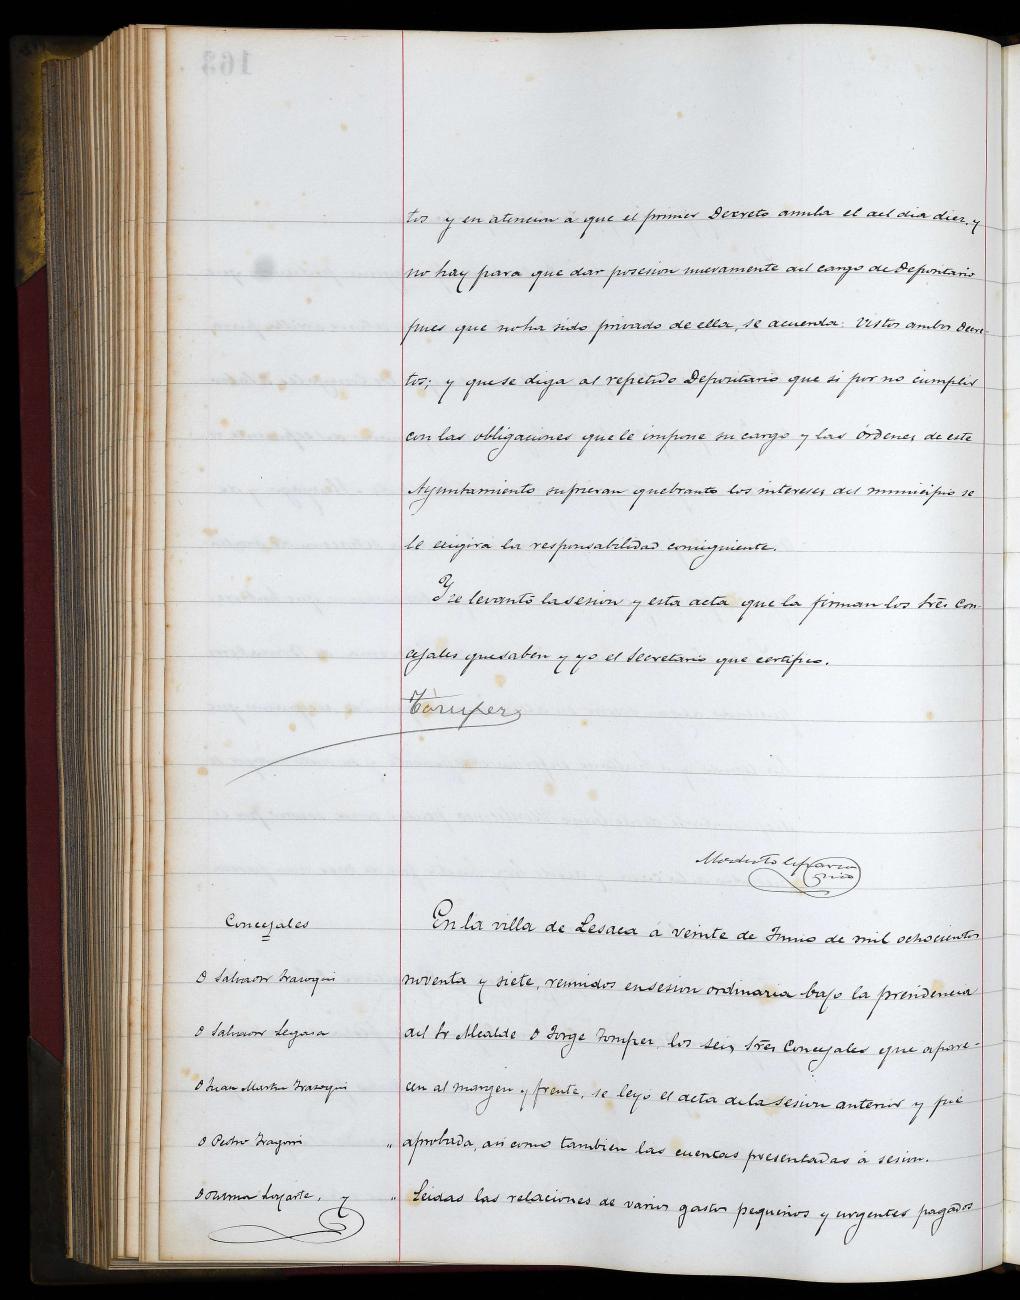 tos y en atencion á que el primer Decreto anula el del dia diez, y
no hay para que dar posesion nuevamente del cargo de Depositario
pues que no ha sido privado de ella, se acuerda: Vistos ambos Decre-
tos; y que se diga al repetido Depositario que si por no cumplir
con las obligaciones que le impone su cargo y las órdenes de este
Ayuntamiento sufrieran quebranto los intereses del municipio se
le exigira la responsabilidad consiguiente.
Y se levantó la sesion y esta acta que la firman los Sres Con-
cejales que saben y yo el Secretario que certifico.
Modesto
Concejales
En la villa de Lesaca á veinte de Junio de mil ochocientos
D Salvador Irazoqui
noventa y siete, reunidos en sesion ordinaria bajo la presidencia
D Salvador Legasa
del Sr Alcalde D Jorge Tomper, los seis Sres Concejales que apare-
D Juan Martin Irazoqui
cen al margen y frente, se leyo el acta de la sesion anterior y fue
D Pedro
" aprobada, asi como tambien las cuentas presentadas á sesion.
Loyarte, y
" Leidas las relaciones de varios gastos pequeños y urgentes pagados